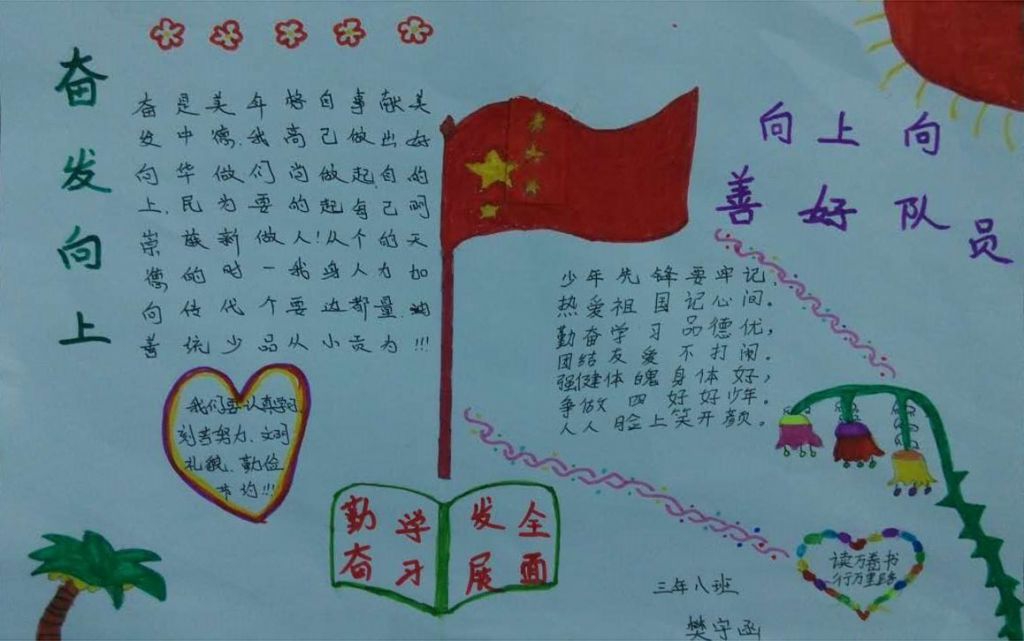 奋发向上
奋发向上、崇德向善
是中华民族的传统
美德.做为新时代少
年我们要做一个品
格高尚的人!我要从
自己做起从身边小
事做起.每个人都贡
献出自己的力量.为
美好的明天加油!!!
向上向
善好队员
少年先锋要牢记,
热爱祖国记心间。
勤奋学习品德优,
团结友爱不打闹。
强健体魄身体好,
争做四好好少年。
人人脸上笑开颜。
我们要认真学习
刻苦努力、文明
礼貌、勤俭
节约!!!
勤奋学习
发展全面
读万卷书
行万里路
三年八班
樊宇函